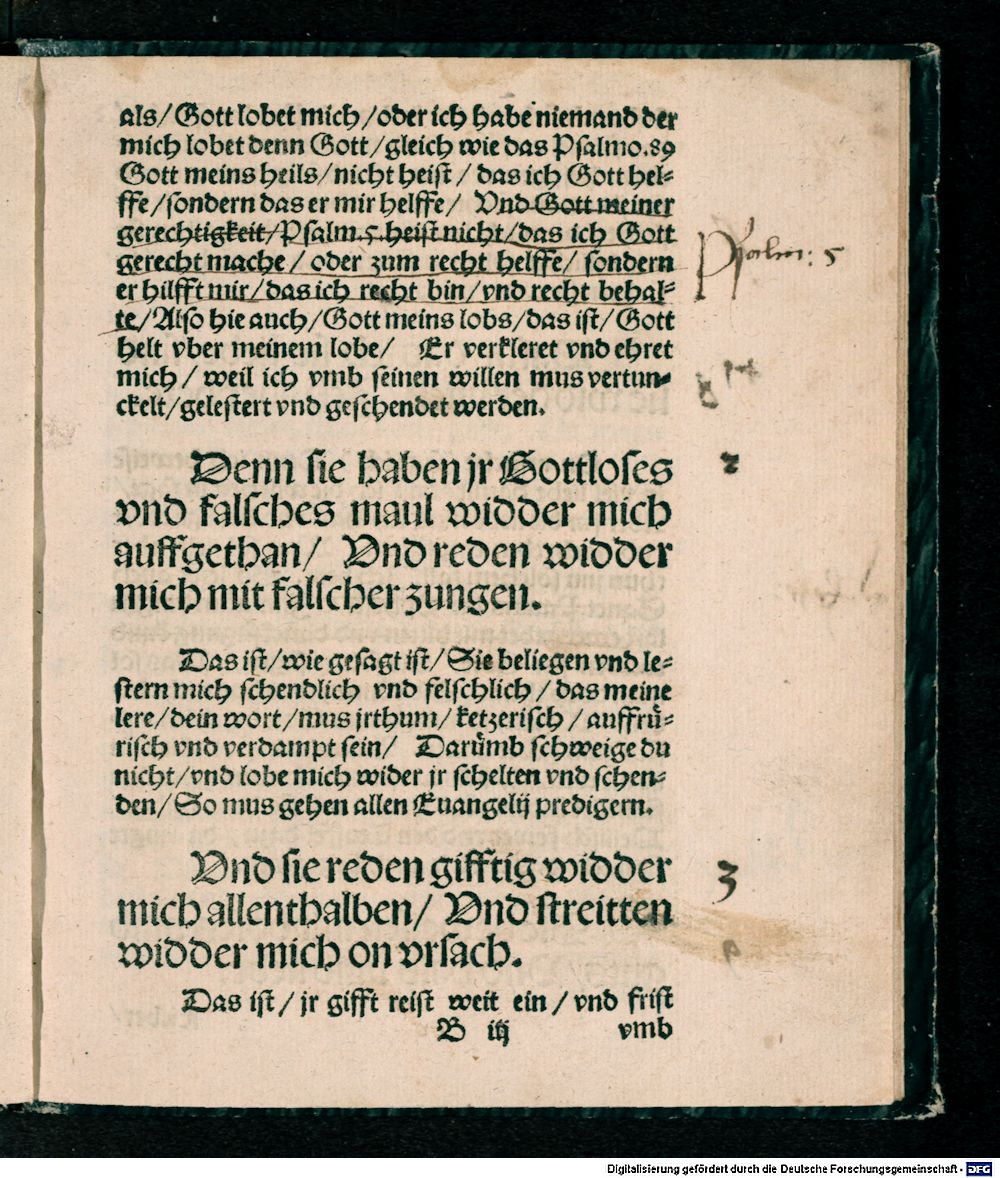 als/Gott lobet mich/oder ich habe niemand der
mich lobet denn Gott/gleich wie das Psalmo.89
Gott meins heils/nicht heist/ das ich Gott hel-
ffe/sondern das er mir helffe/ Vnd Gott meiner
gerechtigkeit/Psalm.5.heist nicht/das ich Gott
gerecht mache/ oder zum recht helffe/ sondern
er hilfft mir/das ich recht bin/vnd recht behal-
te/Also hie auch/Gott meins lobs/das ist/Gott
helt vber meinem lobe/ Er verkleret vnd ehret
mich/ weil ich vmb seinen willen mus vertun-
ckelt/gelestert vnd geschendet werden.
Psalm: 5
Denn sie haben jr Gottloses
vnd falsches maul widder mich
auffgethan/ Vnd reden widder
mich mit falscher zungen.
2
Das ist/wie gesagt ist/Sie beliegen vnd le-
stern mich schendlich vnd felschlich/das meine
lere/dein wort/mus jrthum/ketzerisch/auffrů-
risch vnd verdampt sein/ Darůmb schweige du
nicht/vnd lobe mich wider jr schelten vnd schen-
den/So mus gehen allen Euangelij predigern.
Vnd sie reden gifftig widder
mich allenthalben/ Vnd streitten
widder mich on vrsach.
3
Das ist/ jr gifft reist weit ein/vnd frist
B iij vmb
Digitalisierung gefördert durch die Deutsche Forschungsgemeinschaft - DFG